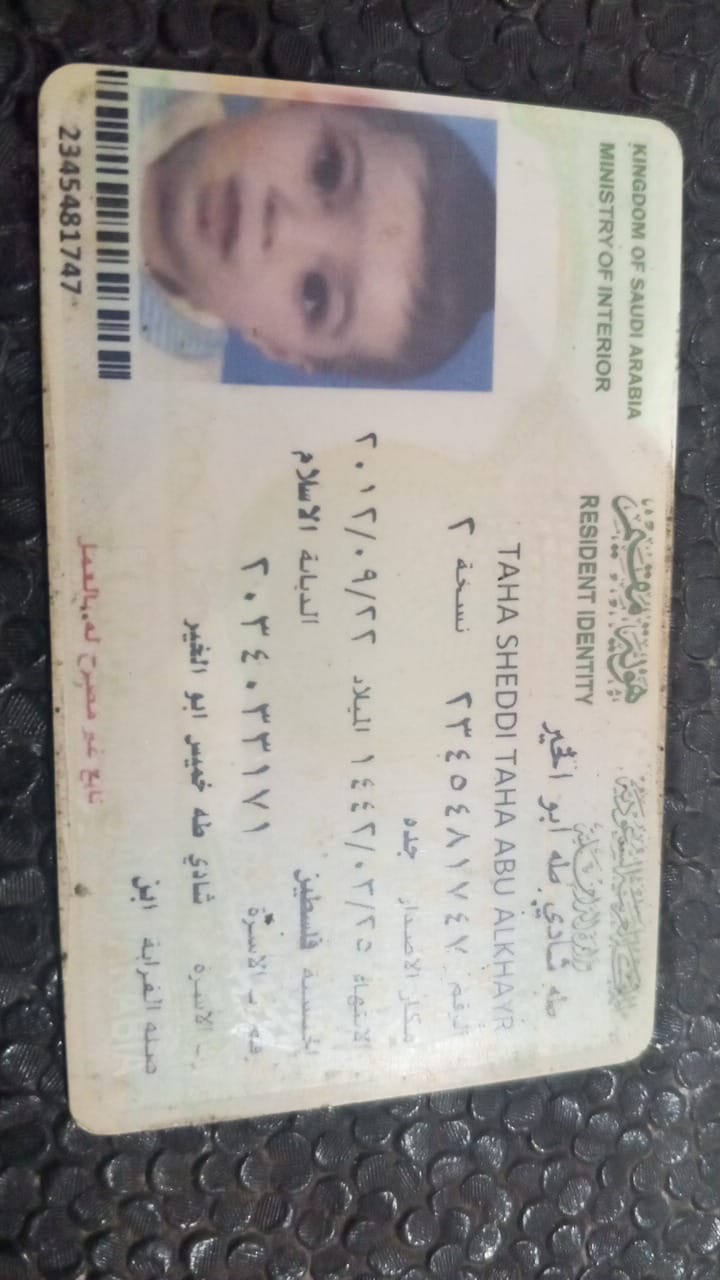 KINGDOM OF SAUDI ARABIA
MINISTRY OF INTERIOR
هوية مقيم
RESIDENT IDENTITY
طه شادي طه ابو الخير
TAHA SHEDDI TAHA ABU ALKHAYR
الرقم ٢٣٤٥٤٨١٧٤٧ نسخة ٢
مكان الاصدار جده
الانتهاء ١٤٤٢/٠٢/٢٥ الميلاد ٢٠١٢/٠٩/٢٢
الجنسية فلسطين الديانة الاسلام
٢٠٣٤٠٣٣١٧١
شادي طه خميس ابو الخير
صلة القرابة ابن
تابع غير مصرح له بالعمل
2345481747